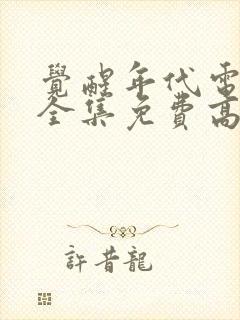 覺醒年代電
全集免費高
許昔龍